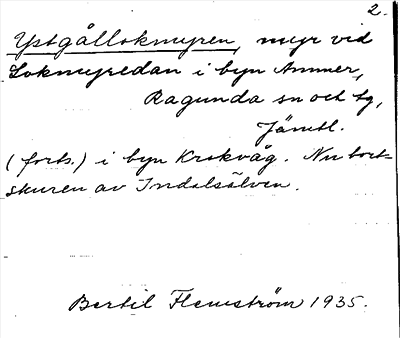 2.
Ystgålloknuyren, myr vid
Lokmyredan i byn Ammer,
Ragunda sn och tg,
Jämtl.
(forts.) i byn Krokvåg. Nu bort-
skuren av Indalsälven.
Bertil Flemström 1935.